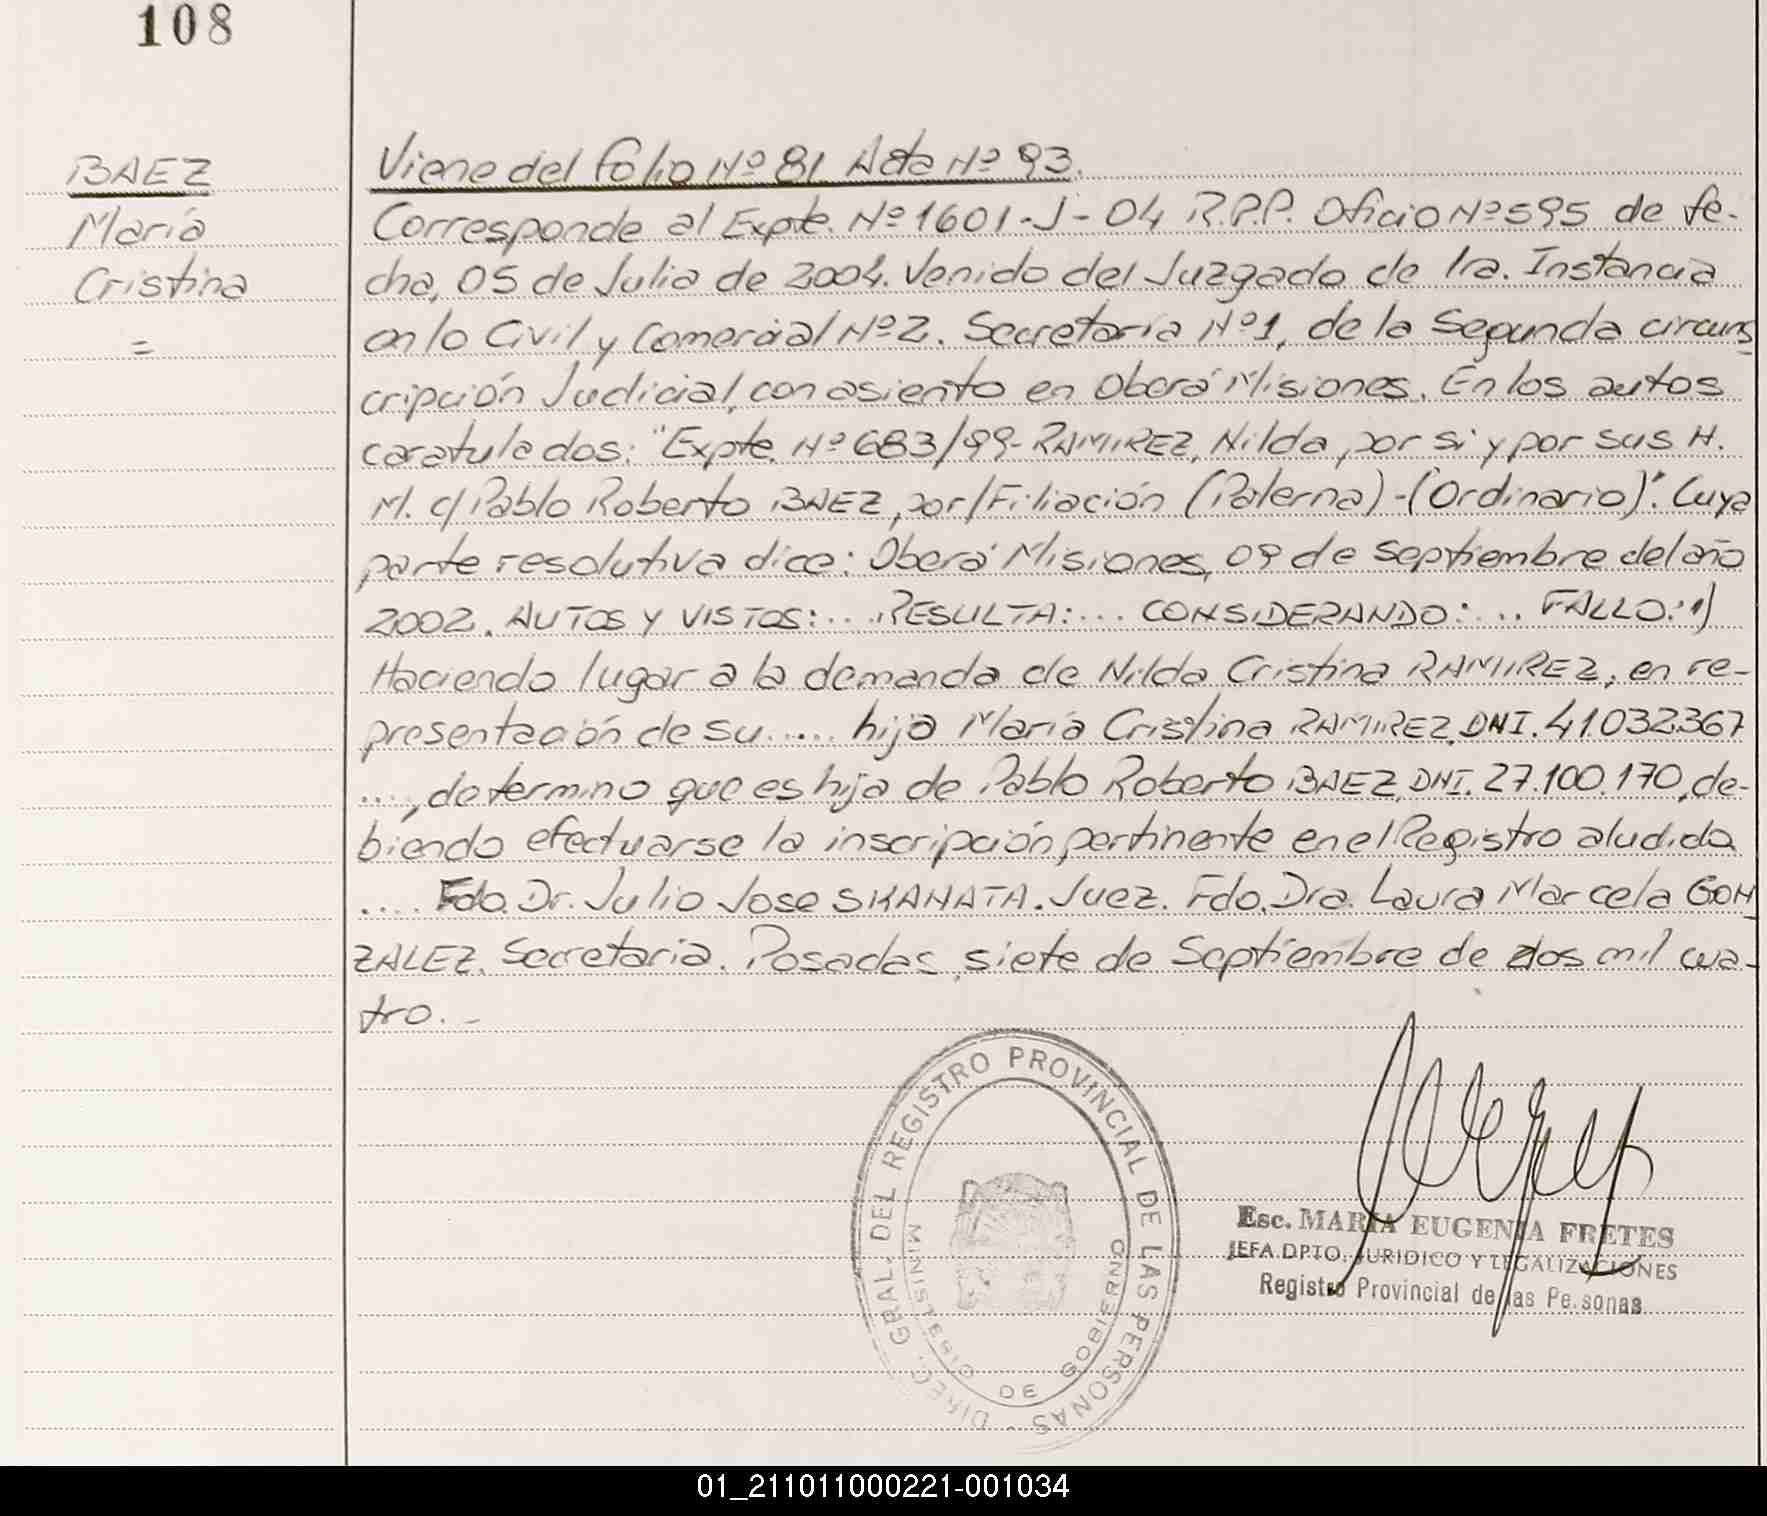 108
BAEZ
María
Cristina
=
Viene del folio Nº 81 Acta Nº 93.
Corresponde al Expte. Nº 1601-J-04 R.P.P. Oficio Nº 595 de fe-
cha, 05 de Julio de 2004. Venido del Juzgado de 1ra. Instancia
en lo Civil y Comercial Nº 2. Secretaría Nº 1, de la Segunda circuns
cripción Judicial, con asiento en Oberá Misiones. En los autos
caratulados: "Expte. Nº 683/99- RAMIREZ, Nilda, por si y por sus H.
M. c/ Pablo Roberto BAEZ, por/Filiación (Paterna)-(Ordinario)". Cuya
parte resolutiva dice: Oberá Misiones, 09 de Septiembre del año
2002. AUTOS Y VISTOS:... RESULTA:... CONSIDERANDO:... FALLO: 1)
Haciendo lugar a la demanda de Nilda Cristina RAMIREZ, en re-
presentación de su..... hija María Cristina RAMIREZ, DNI. 41.032.367
...., determino que es hija de Pablo Roberto BAEZ, DNI. 27.100.170, de-
biendo efectuarse la inscripción pertinente en el Registro aludido
.... Fdo. Dr. Julio Jose SKANATA. Juez. Fdo. Dra. Laura Marcela GON
ZALEZ. Secretaria. Posadas, siete de Septiembre de dos mil cua-
tro.-
DIREC. GRAL. DEL REGISTRO PROVINCIAL DE LAS PERSONAS -
MINISTERIO DE GOBIERNO
Esc. MARIA EUGENIA FRETES
JEFA DPTO. JURIDICO Y LEGALIZACIONES
Registro Provincial de las Personas
01_211011000221-001034